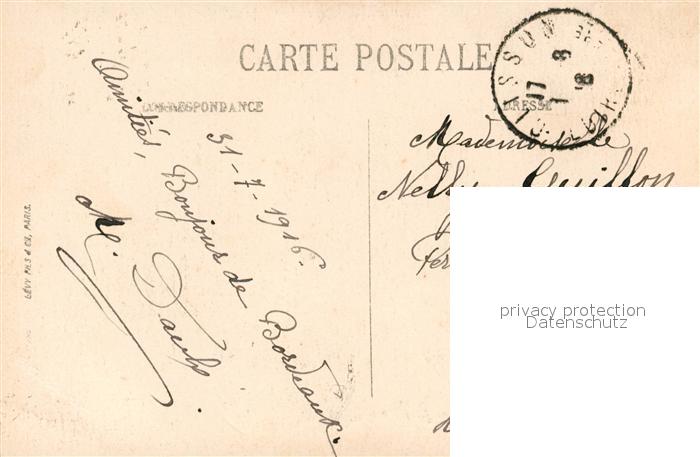 CARTE POSTALE
CORRESPONDANCE
ADRESSE
Amitiés,
31-7-1916.
Bonjour de Bordeaux.
M.
Mademoiselle
Nelly Guillon
LÉVY FILS & Cie, PARIS.
CLISSON
privacy protection
Datenschutz